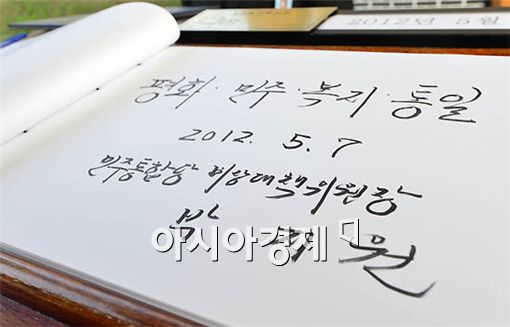 2012년 5월
평화·민주·복지·통일
2012. 5. 7
민주통합당 비상대책위원장
박 지 원
아시아경제